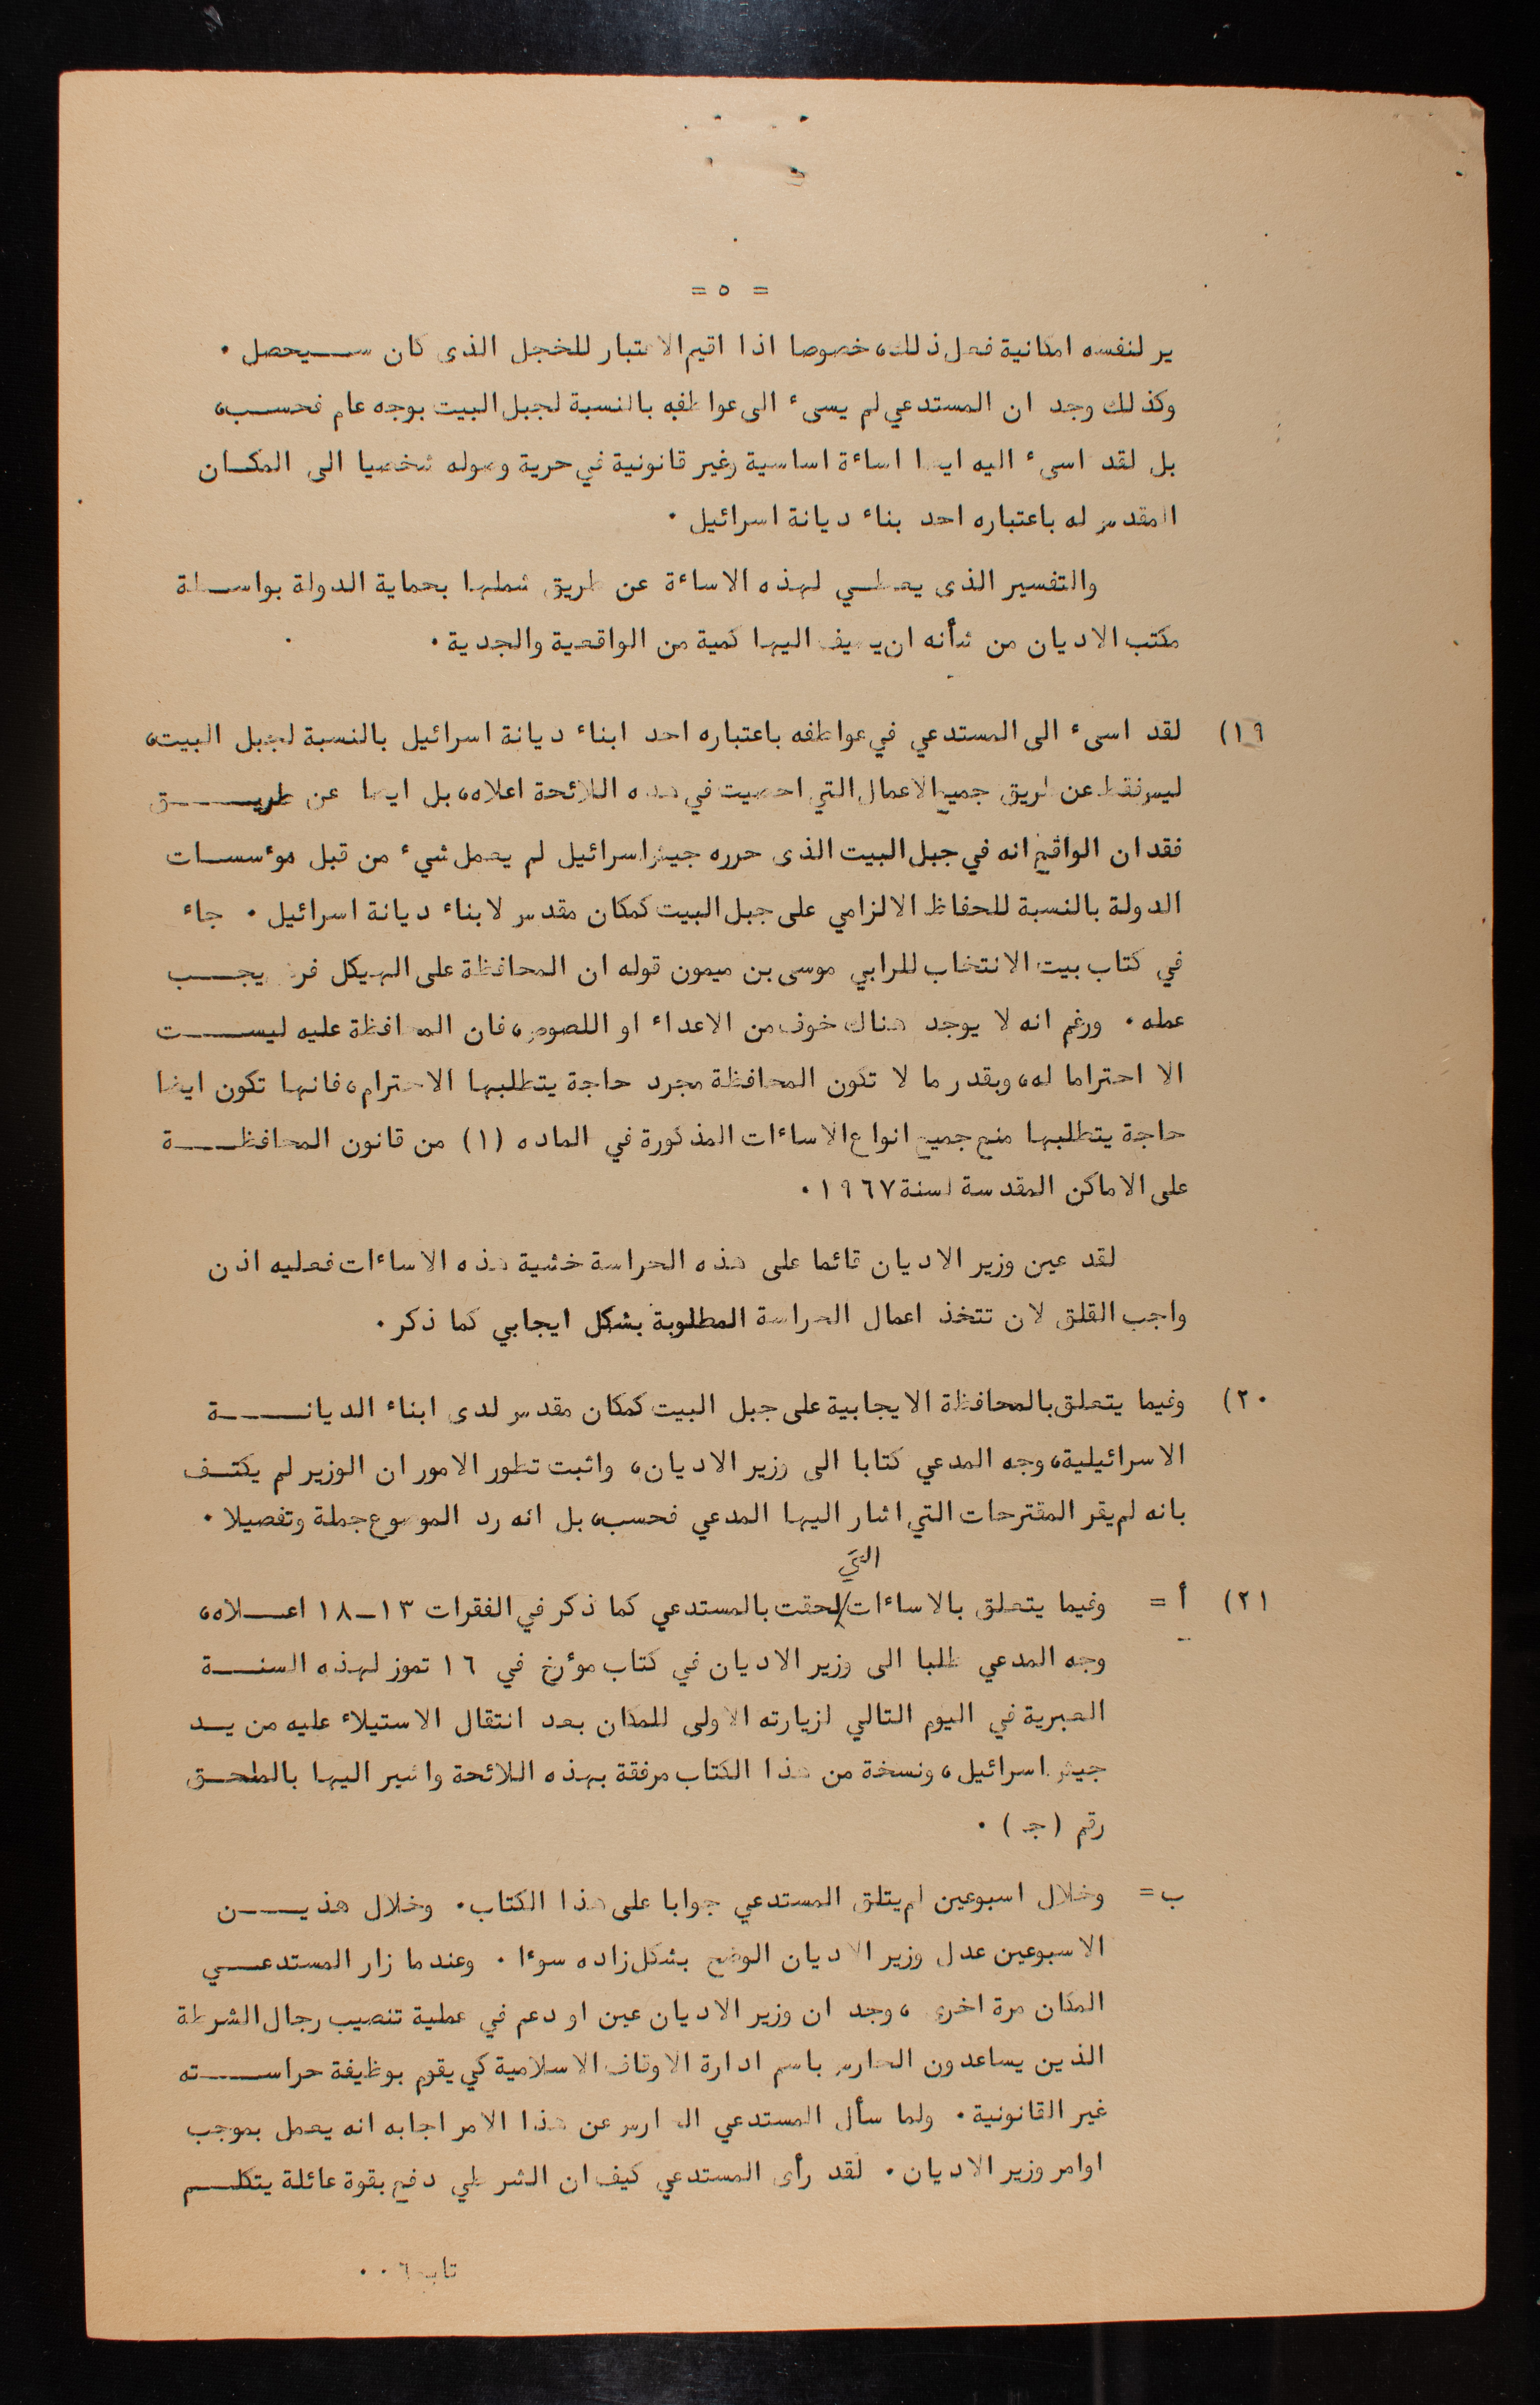 = ٥ =
ير لنفسه امكانية فعل ذلك، خصوصا اذا اقيم الاعتبار للخجل الذى كان سيحصل .
وكذلك وجد ان المستدعي لم يسىء الى عواطفه بالنسبة لجبل البيت بوجه عام فحسب،
بل لقد اسىء اليه ايضا اساءة اساسية وغير قانونية في حرية وصوله شخصيا الى المكان
المقدس له باعتباره احد بناء ديانة اسرائيل .
والتفسير الذى يعطي لهذه الاساءة عن طريق شملها بحماية الدولة بواسطة
مكتب الاديان من شأنه ان يضيف اليها كمية من الواقعية والجدية .
١٩) لقد اسىء الى المستدعي في عواطفه باعتباره احد ابناء ديانة اسرائيل بالنسبة لجبل البيت،
ليس فقط عن طريق جميع الاعمال التي احصيت في هذه اللائحة اعلاه، بل ايضا عن طريق
فقدان الواقع انه في جبل البيت الذى حرره جيش اسرائيل لم يعمل شيء من قبل موءسسات
الدولة بالنسبة للحفاظ الالزامي على جبل البيت كمكان مقدس لابناء ديانة اسرائيل . جاء
في كتاب بيت الانتخاب للرابي موسى بن ميمون قوله ان المحافظة على الهيكل فرض يجب
عمله . ورغم انه لا يوجد هناك خوف من الاعداء او اللصوص، فان المحافظة عليه ليست
الا احتراما له، وبقدر ما لا تكون المحافظة مجرد حاجة يتطلبها الاحترام، فانها تكون ايضا
حاجة يتطلبها منع جميع انواع الاساءات المذكورة في الماده (١) من قانون المحافظة
على الاماكن المقدسة لسنة ١٩٦٧ .
لقد عين وزير الاديان قائما على هذه الحراسة خشية هذه الاساءات فعليه اذن
واجب القلق لان تتخذ اعمال الحراسة المطلوبة بشكل ايجابي كما ذكر .
٢٠) وفيما يتعلق بالمحافظة الايجابية على جبل البيت كمكان مقدس لدى ابناء الديانة
الاسرائيلية، وجه المدعي كتابا الى وزير الاديان، واثبت تطور الامور ان الوزير لم يكتف
بانه لم يقر المقترحات التي اشار اليها المدعي فحسب، بل انه رد الموضوع جملة وتفصيلا .
٢١) أ = وفيما يتعلق بالاساءات التي لحقت بالمستدعي كما ذكر في الفقرات ١٣-١٨ اعلاه،
وجه المدعي طلبا الى وزير الاديان في كتاب موءرخ في ١٦ تموز لهذه السنة
العبرية في اليوم التالي لزيارته الاولى للمكان بعد انتقال الاستيلاء عليه من يد
جيش اسرائيل، ونسخة من هذا الكتاب مرفقة بهذه اللائحة واشير اليها بالملحق
رقم (جـ) .
ب = وخلال اسبوعين لم يتلق المستدعي جوابا على هذا الكتاب . وخلال هذين
الاسبوعين عدل وزير الاديان الوضع بشكل زاده سوءا . وعندما زار المستدعي
المكان مرة اخرى ، وجد ان وزير الاديان عين او دعم في عملية تنصيب رجال الشرطة
الذين يساعدون الحارس باسم ادارة الاوقاف الاسلامية كي يقوم بوظيفة حراسته
غير القانونية . ولما سأل المستدعي الحارس عن هذا الامر اجابه انه يعمل بموجب
اوامر وزير الاديان . لقد رأى المستدعي كيف ان الشرطي دفع بقوة عائلة يتكلم
تابع ٦ . .